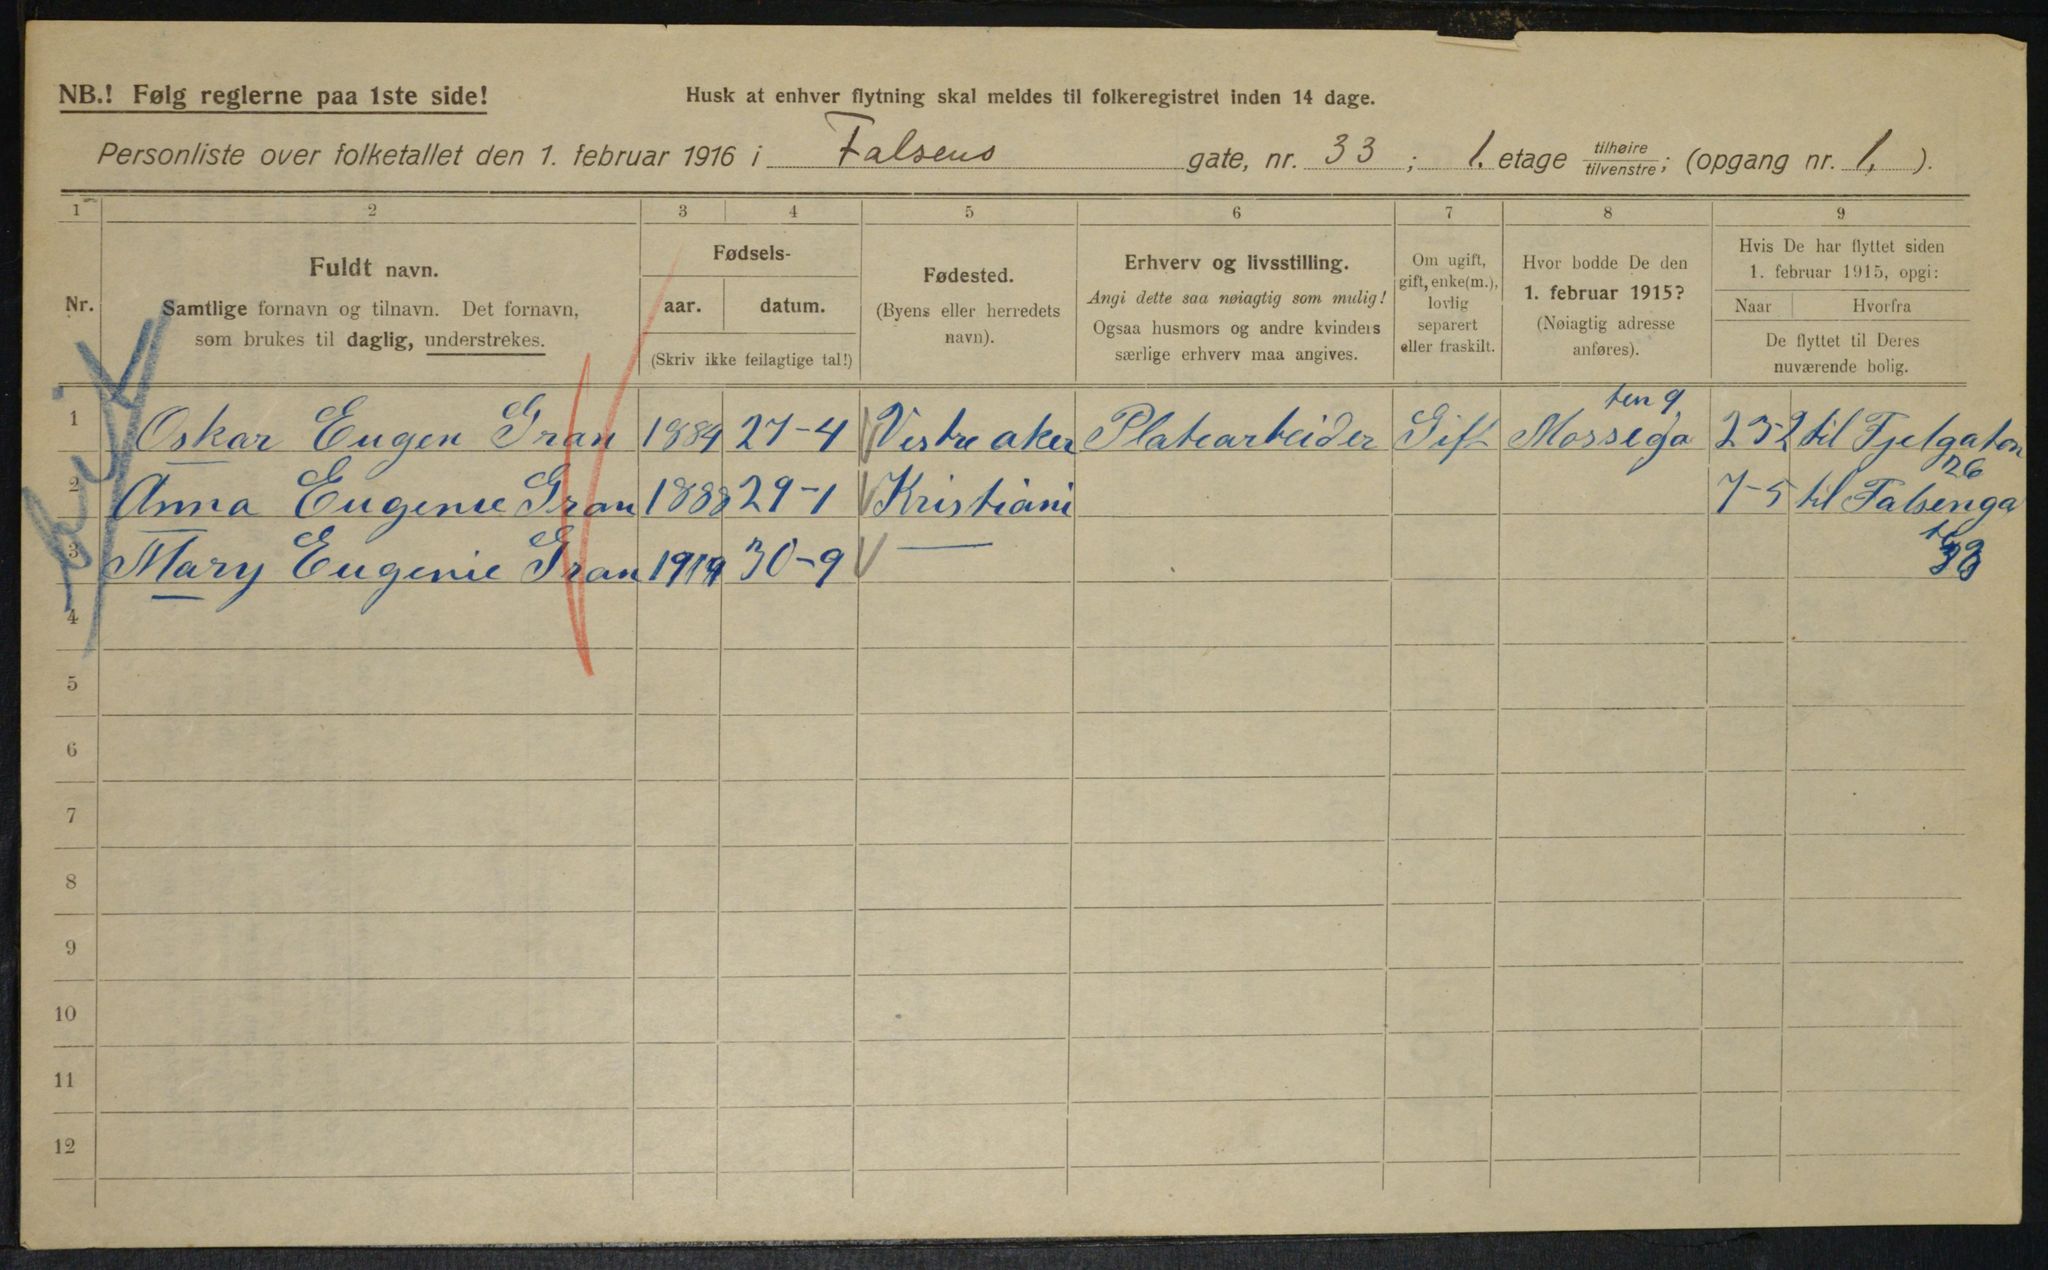 NB.! Følg reglerne paa 1ste side!
Husk at enhver flytning skal meldes til folkeregistret inden 14 dage.
Personliste over folketallet den 1. februar 1916 i Falsens gate, nr. 33; 1. etage tilhøire/tilvenstre; (opgang nr. 1, ).
1 2 3 4 5 6 7 8 9
Nr.
Fuldt navn.
Samtlige fornavn og tilnavn. Det fornavn,
som brukes til daglig, understrekes.
Fødsels-
aar. datum.
(Skriv ikke feilagtige tal!)
Fødested.
(Byens eller herredets
navn).
Erhverv og livsstilling.
Angi dette saa nøiagtig som mulig!
Ogsaa husmors og andre kvinders
særlige erhverv maa angives.
Om ugift,
gift, enke(m.),
lovlig
separert
eller fraskilt.
Hvor bodde De den
1. februar 1915?
(Nøiagtig adresse
anføres).
Hvis De har flyttet siden
1. februar 1915, opgi:
Naar Hvorfra
De flyttet til Deres
nuværende bolig.
ten 9
1 Oskar Eugen Gran 1884 27-4 Vestre aker Platearbeider Gift Mossega 23-2 til Fjelgaten
26
2 Anna Eugenie Gran 1888 29-1 Kristiani 7-5 til Falsenga
3 Mary Eugenie Gran 1914 30-9 — 33
4
5
6
7
8
9
10
11
12